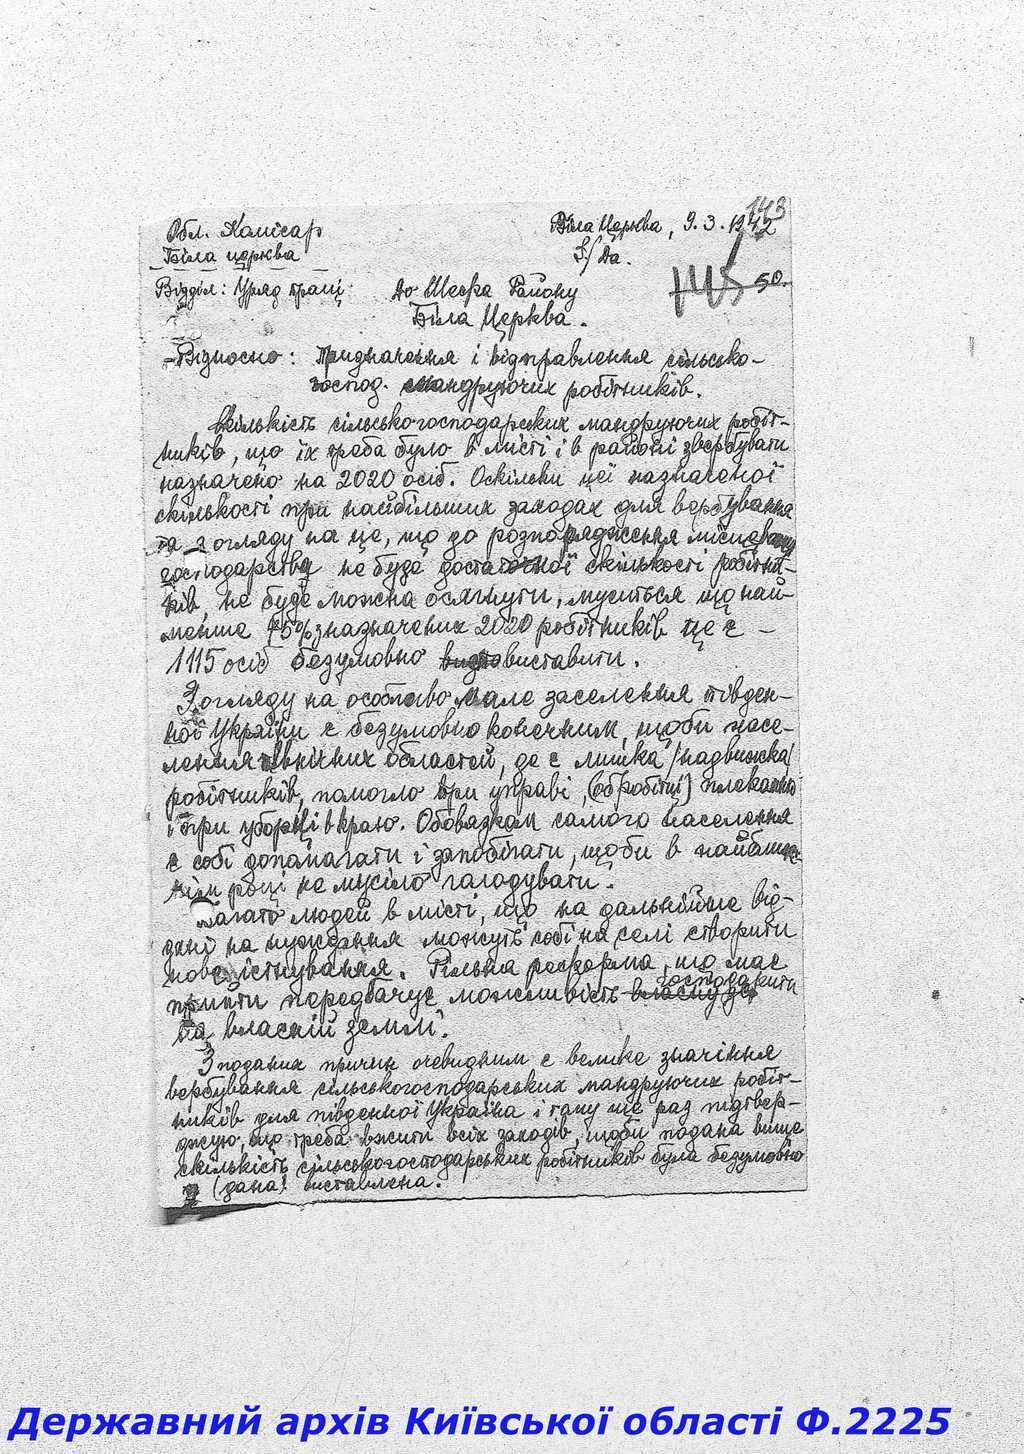 143
Обл. Комісар
Біла Церква, 9.3.1942
Біла церква
S./Да.
Відділ: Уряд праці
До Шефа Району
145 50.
Біла Церква.
Відносно: Призначення і відправлення сільсько-
господ. мандруючих робітників.
Скількість сільськогосподарських мандруючих робіт-
ників, що їх треба було в місті і в районі звербувати
назначено на 2020 осіб. Оскільки цеї назначеної
скількості при найбільших заходах для вербування
та з огляду на це, що до розпорядження місцевому
господарству не буде достаточної скількості робітни-
ків, не буде можна осягнути, муситься що най-
менше 75% назначених 2020 робітників це є -
1115 осіб безумовно виставити.
З огляду на особливо мале заселення півден-
ної України є безумовно конечним, щоби насе-
лення північних областей, де є лишка /надвижка/
робітників, помогло при управі, (обробітці) плеканню
і при уборці врожаю. Обовязком самого населення
є собі допомагати і запобігати, щоби в найближ-
чім році не мусіло голодувати.
Багато людей в місті, що на дальнійше від-
дані на нуждання можуть собі на селі створити
нове існування. Гільна реформа, що має
прийти передбачує можливість господарити
на власній землі.
З поданих причин очевидним є велике значіння
вербування сільськогосподарських мандруючих робіт-
ників для південної Україна і тому ще раз підтвер-
джую, що треба вжити всіх заходів, щоби подана вище
скількість сільськогосподарських робітників була безумовно
(дана) виставлена.
Державний архів Київської області Ф.2225